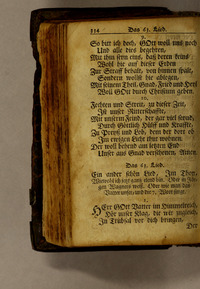 Das 65. Lied.
So bitt ich doch, GOtt woll uns noch
Und alle dies begehren,
Mit ihm seyn eins, daß deren keins
Wohl hie auf dieser Erden
Zur Straff behalt, von hinnen spalt,
Sondern wollst hie ablegen,
Mit seinem Theil, Gnad, Fried und Heil
Woll GOtt durch Christum geben.
10.
Fechten und Streit, zu dieser Zeit,
Ist unser Ritterschaffte,
Mit unserm Feind, der gar viel seynd,
Durch Göttlich Hülff und Kraffte,
Zu Preiß und Lob, dem der dort ob
Im ewigen Licht thut wohnen,
Der woll behend am letzten End
Unser aus Gnad verschonen. Amen
Das 65. Lied.
Ein ander schön Lied, Im Thon,
1.
HErr GOtt Vatter im Himmelreich,
Hör unser Klag, die wir zugleich
In Trübsal vor dich bringen,
Der